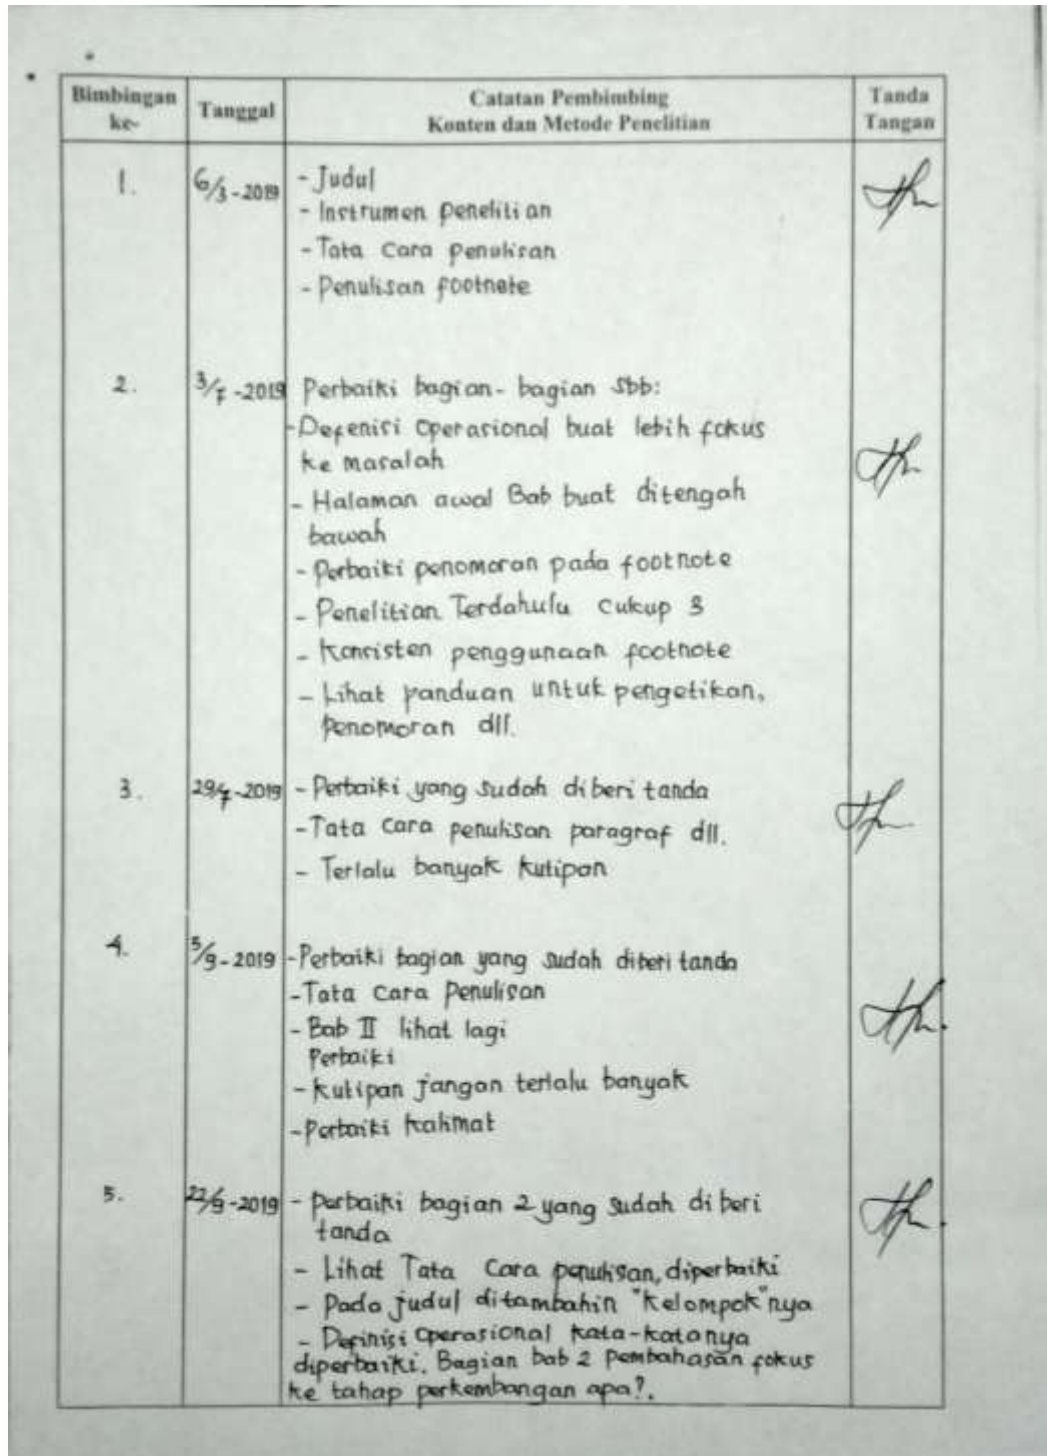 Bimbingan ke-
Tanggal
Catatan Pembimbing
Konten dan Metode Penelitian
Tanda Tangan
1.
6/3-2019
- Judul
- Instrumen penelitian
- Tata Cara penulisan
- Penulisan footnote
2.
3/7-2019
Perbaiki bagian-bagian sbb:
- Defenisi Operasional buat lebih fokus
ke masalah
- Halaman awal Bab buat ditengah
bawah
- Perbaiki penomoran pada footnote
- Penelitian Terdahulu Cukup 3
- Konsisten penggunaan footnote
- Lihat panduan untuk pengetikan,
Penomoran dll.
3.
29/7-2019
- Perbaiki yang sudah diberi tanda
- Tata Cara penulisan paragraf dll.
- Terlalu banyak kutipan
4.
5/9-2019
- Perbaiki bagian yang sudah diberi tanda
- Tata Cara Penulisan
- Bab II lihat lagi
Perbaiki
- kutipan jangan terlalu banyak
- Perbaiki kalimat
5.
22/9-2019
- perbaiki bagian 2 yang sudah diberi
tanda
- Lihat Tata Cara penulisan, diperbaiki
- Pada judul ditambahin "Kelompok"nya
- Definisi Operasional kata-katanya
diperbaiki. Bagian bab 2 Pembahasan fokus
ke tahap perkembangan apa?.